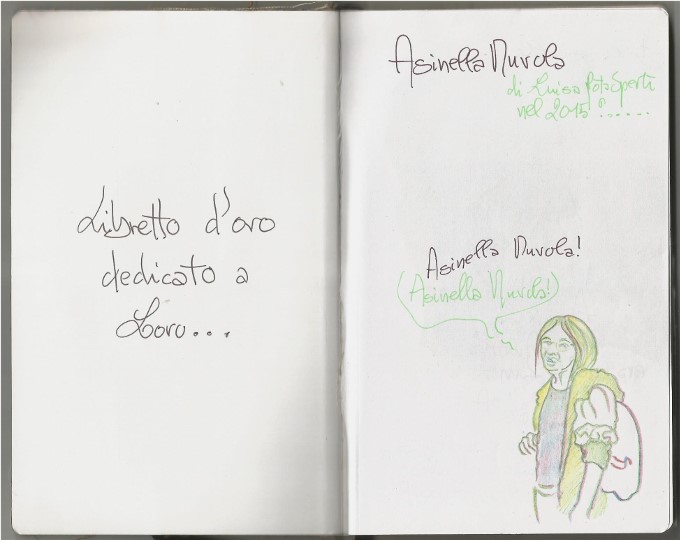 Libretto d'oro
dedicato a
Loro...
Asinella Nuvola
di Luisa Pota Sperti
nel 2015?......
Asinella Nuvola!
(Asinella Nuvola!)